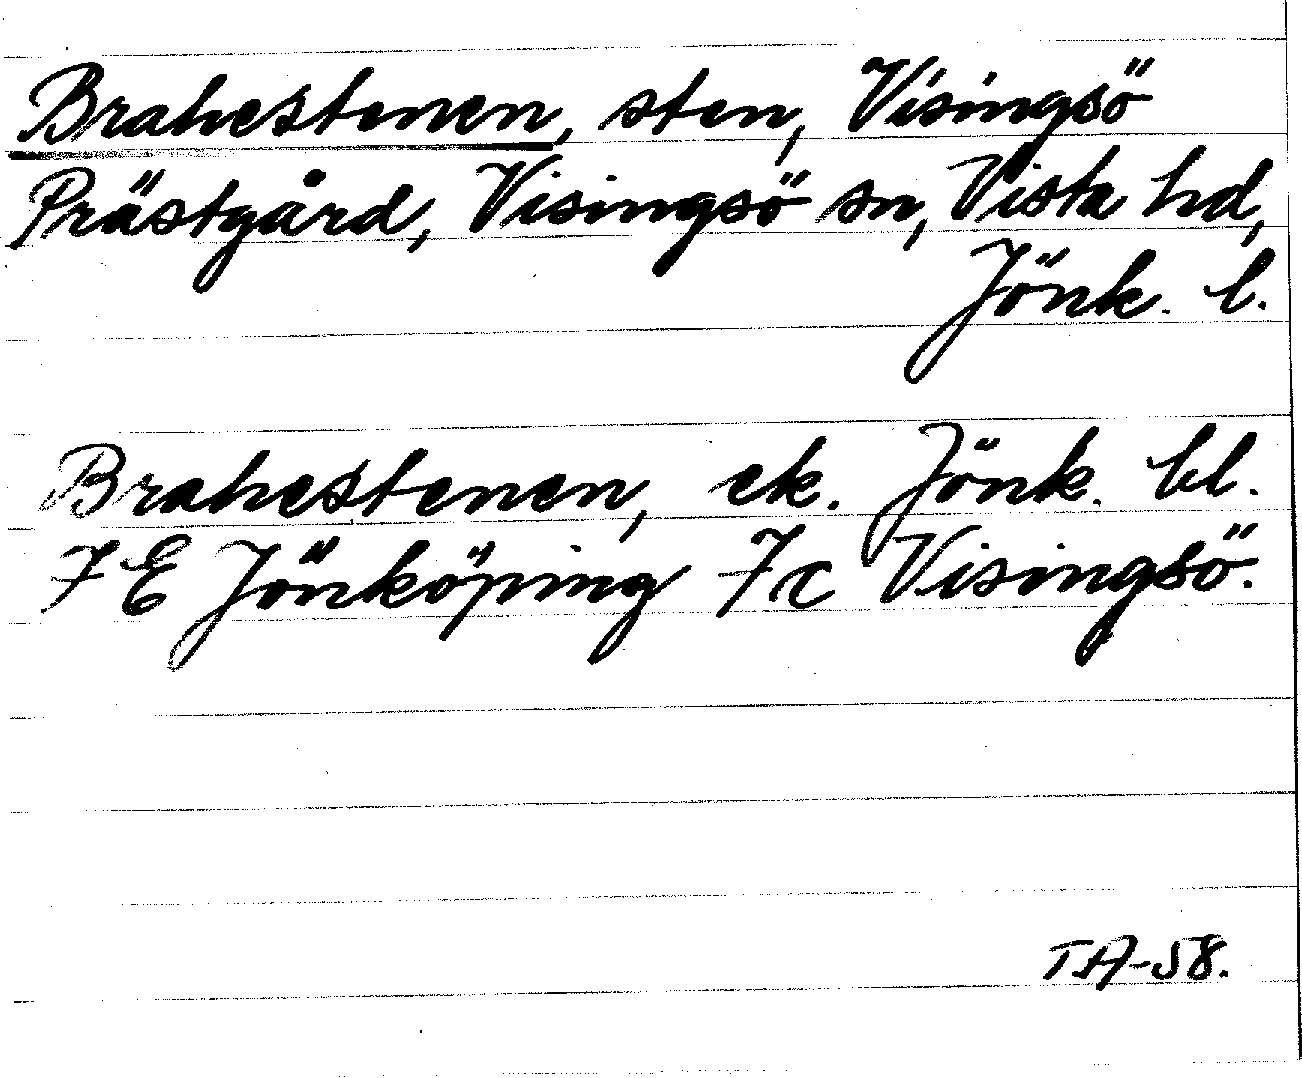 Brahestenen, sten, Visingsö
Prästgård, Visingsö sn, Vista hd,
Jönk. l.
Brahestenen, ek. Jönk. bl.
7E Jönköping 7c Visingsö.
TA-58.